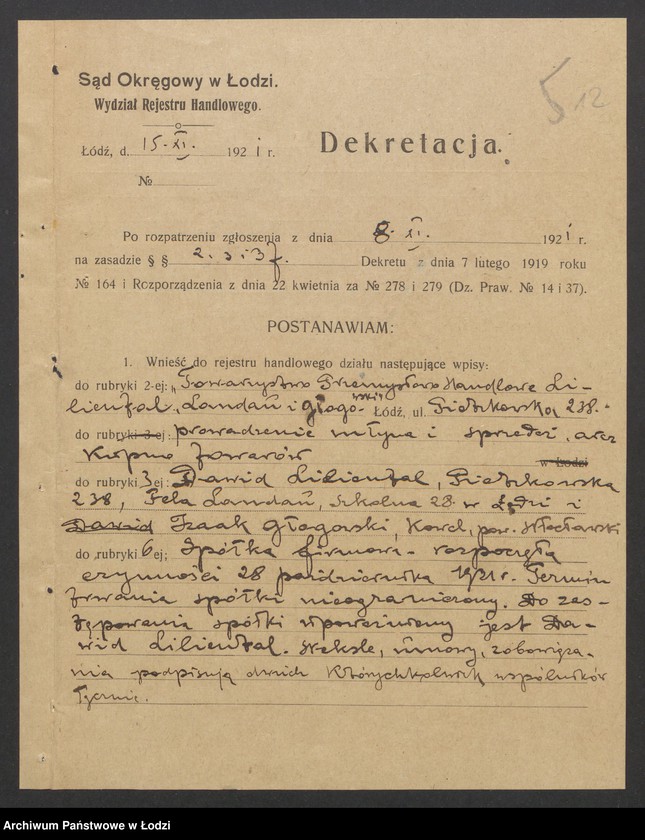 Sąd Okręgowy w Łodzi.
Wydział Rejestru Handlowego.
5 12
Dekretacja.
Łódź, d. 15. XI. 1921 r.
№
Po rozpatrzeniu zgłoszenia z dnia 8. XI. 1921 r.
na zasadzie § § 2. 3 i 3 f. Dekretu z dnia 7 lutego 1919 roku
№ 164 i Rozporządzenia z dnia 22 kwietnia za № 278 i 279 (Dz. Praw. № 14 i 37).
POSTANAWIAM:
1. Wnieść do rejestru handlowego działu następujące wpisy:
do rubryki 2-ej: „Towarzystwo Przemysłowo Handlowe Li-
liental, Landau i Głogowski" Łódź, ul. Piotrkowska 238.
do rubryki 3-ej: prowadzenie młyna i sprzedaż, oraz
kupno towarów w Łodzi
do rubryki 3 ej: Dawid Liliental, Piotrkowska
238, Fela Landau, Szkolna 28 w Łodzi i
Dawid Izaak Głogowski, Kowal, pow. Włocławski
do rubryki 6 ej; Spółka firmowa - rozpoczęła
czynności 28 października 1921 r. Termin
trwania spółki nieograniczony. Do zas-
tępowania spółki upoważniony jest Da-
wid Liliental. Weksle, umowy, zobowiąza-
nia podpisują dwóch którychkolwiek wspólników
łącznie.
Archiwum Państwowe w Łodzi